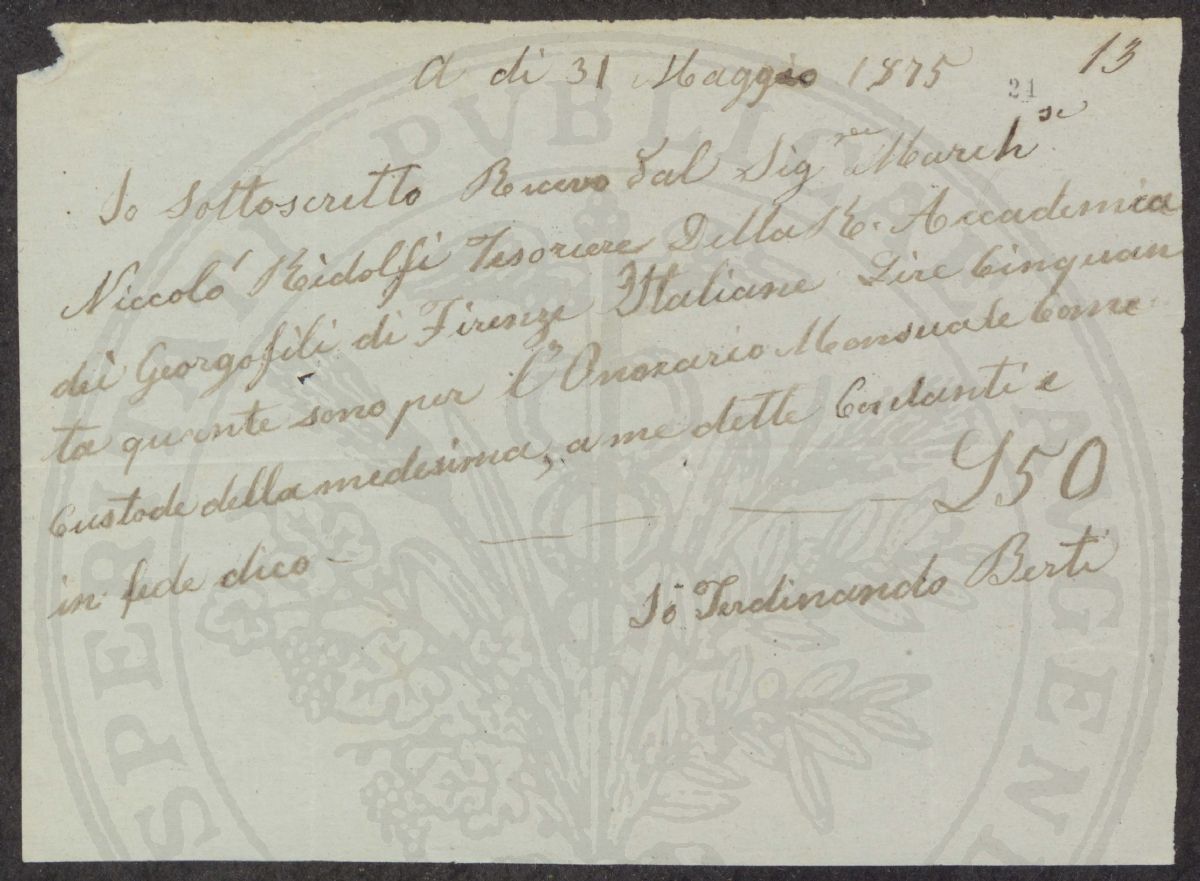 A dì 31 Maggio 1875
13
21
Io Sottoscritto Ricevo dal Sig.re March.se
Niccoló Ridolfi Tesoriere Della R. Accademia
dei Georgofili di Firenze Italiane Lire Cinquan
ta queste sono per l'Onorario Mensuale Come
Custode della medesima, a me dette Contanti e
in fede dico — £50
Io Ferdinando Berti
PROSPERITATI PVBLICAE AVGENDAE